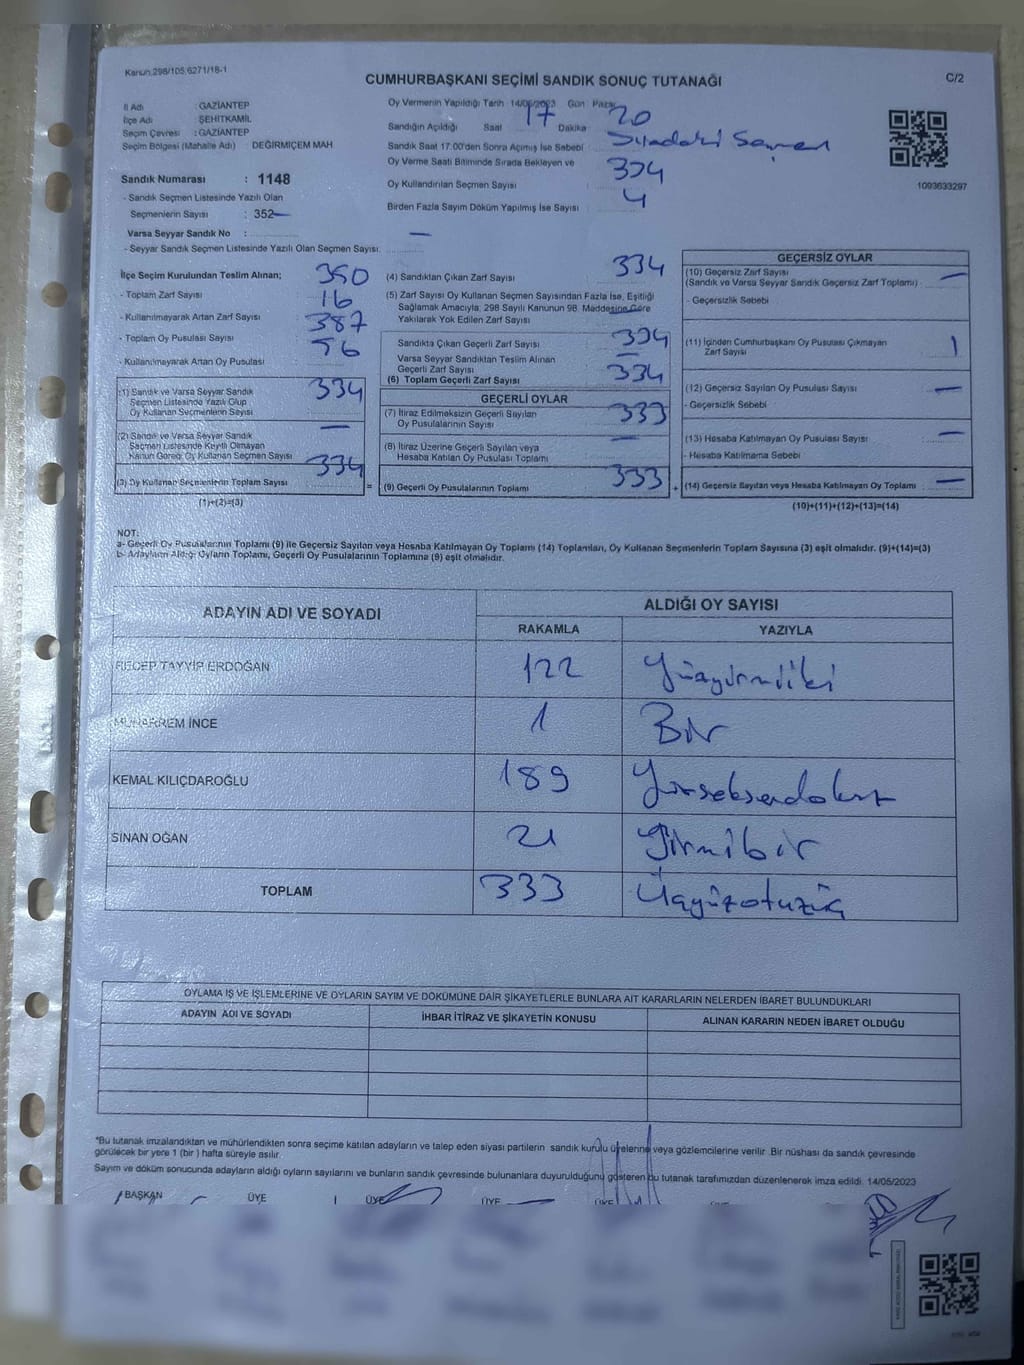 Kanun:298/105,6271/18-1
CUMHURBAŞKANI SEÇİMİ SANDIK SONUÇ TUTANAĞI
C/2
İl Adı : GAZİANTEP
İlçe Adı : ŞEHİTKAMİL
Seçim Çevresi : GAZİANTEP
Seçim Bölgesi (Mahalle Adı) : DEĞİRMİÇEM MAH.
Sandık Numarası : 1148
- Sandık Seçmen Listesinde Yazılı Olan
Seçmenlerin Sayısı : 352
Varsa Seyyar Sandık No :
- Seyyar Sandık Seçmen Listesinde Yazılı Olan Seçmen Sayısı: —
Oy Vermenin Yapıldığı Tarih 14/05/2023 Gün Pazar
Sandığın Açıldığı Saat 17 Dakika 20
Sandık Saat 17:00'den Sonra Açımış İse Sebebi : Sıradaki Seçmen
Oy Verme Saati Bitiminde Sırada Bekleyen ve
Oy Kullandırılan Seçmen Sayısı : 334
Birden Fazla Sayım Döküm Yapılmış İse Sayısı : 4
1003633297
İlçe Seçim Kurulundan Teslim Alınan;
- Toplam Zarf Sayısı : 350
- Kullanılmayarak Artan Zarf Sayısı : 16
- Toplam Oy Pusulası Sayısı : 387
- Kullanılmayarak Artan Oy Pusulası : 56
(1) Sandık ve Varsa Seyyar Sandık
Seçmen Listesinde Yazılı Olup
Oy Kullanan Seçmenlerin Sayısı 334
(2) Sandık ve Varsa Seyyar Sandık
Seçmen Listesinde Kayıtlı Olmayan
Kanun Gereği Oy Kullanan Seçmen Sayısı —
(3) Oy Kullanan Seçmenlerin Toplam Sayısı 334
(1)+(2)=(3)
(4) Sandıktan Çıkan Zarf Sayısı : 334
(5) Zarf Sayısı Oy Kullanan Seçmen Sayısından Fazla İse, Eşitliği
Sağlamak Amacıyla; 298 Sayılı Kanunun 98. Maddesine Göre
Yakılarak Yok Edilen Zarf Sayısı
Sandıkta Çıkan Geçerli Zarf Sayısı : 334
Varsa Seyyar Sandıktan Teslim Alınan
Geçerli Zarf Sayısı : —
(6) Toplam Geçerli Zarf Sayısı 334
GEÇERLİ OYLAR
(7) İtiraz Edilmeksizin Geçerli Sayılan
Oy Pusulalarının Sayısı 333
(8) İtiraz Üzerine Geçerli Sayılan veya
Hesaba Katılan Oy Pusulası Toplamı —
(9) Geçerli Oy Pusulalarının Toplamı 333
GEÇERSİZ OYLAR
(10) Geçersiz Zarf Sayısı
(Sandık ve Varsa Seyyar Sandık Geçersiz Zarf Toplamı) —
- Geçersizlik Sebebi
(11) İçinden Cumhurbaşkanı Oy Pusulası Çıkmayan
Zarf Sayısı 1
(12) Geçersiz Sayılan Oy Pusulası Sayısı —
- Geçersizlik Sebebi
(13) Hesaba Katılmayan Oy Pusulası Sayısı —
- Hesaba Katılmama Sebebi
(14) Geçersiz Sayılan veya Hesaba Katılmayan Oy Toplamı —
(10)+(11)+(12)+(13)=(14)
NOT:
a- Geçerli Oy Pusulalarının Toplamı (9) ile Geçersiz Sayılan veya Hesaba Katılmayan Oy Toplamı (14) Toplamları, Oy Kullanan Seçmenlerin Toplam Sayısına (3) eşit olmalıdır. (9)+(14)=(3)
b- Adayların Aldığı Oyların Toplamı, Geçerli Oy Pusulalarının Toplamına (9) eşit olmalıdır.
ADAYIN ADI VE SOYADI
ALDIĞI OY SAYISI
RAKAMLA YAZIYLA
RECEP TAYYİP ERDOĞAN 122 Yüzyirmiiki
MUHARREM İNCE 1 Bir
KEMAL KILIÇDAROĞLU 189 Yüzseksendokuz
SİNAN OĞAN 21 Yirmibir
TOPLAM 333 Üçyüzotuzüç
OYLAMA İŞ VE İŞLEMLERİNE VE OYLARIN SAYIM VE DÖKÜMÜNE DAİR ŞİKAYETLERLE BUNLARA AİT KARARLARIN NELERDEN İBARET BULUNDUKLARI
ADAYIN ADI VE SOYADI İHBAR İTİRAZ VE ŞİKAYETİN KONUSU ALINAN KARARIN NEDEN İBARET OLDUĞU
*Bu tutanak imzalandıktan ve mühürlendikten sonra seçime katılan adayların ve talep eden siyasi partilerin sandık kurulu üyelerine veya gözlemcilerine verilir. Bir nüshası da sandık çevresinde
görülecek bir yere 1 (bir) hafta süreyle asılır.
Sayım ve döküm sonucunda adayların aldığı oyların sayılarını ve bunların sandık çevresinde bulunanlara duyurulduğunu gösteren bu tutanak tarafımızdan düzenlenerek imza edildi. 14/05/2023
BAŞKAN ÜYE ÜYE ÜYE ÜYE